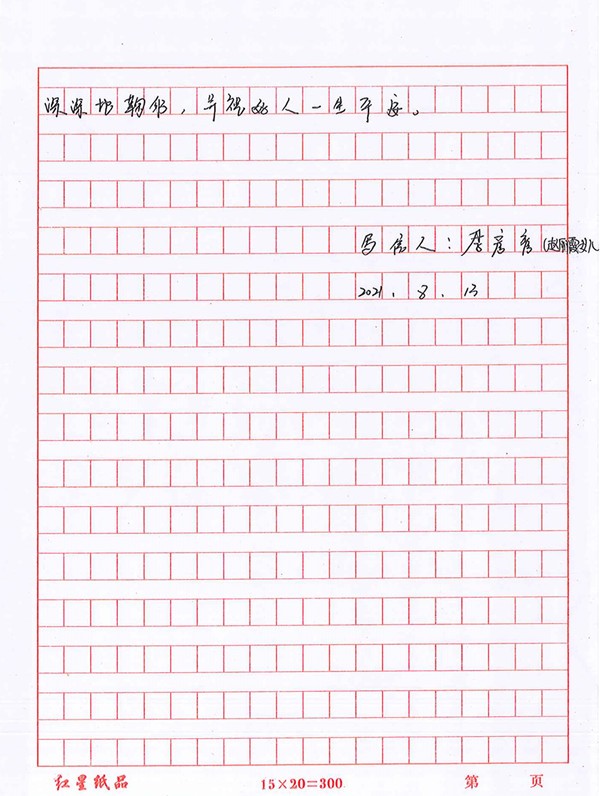 深深地鞠躬，并祝好人一生平安。
写信人：彦（赵丽霞女儿
2021.8.13
红星纸品 15×20=300 第 页